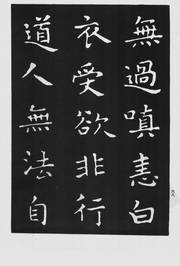 無過嗔恚白
衣受欲非行
道人無法自